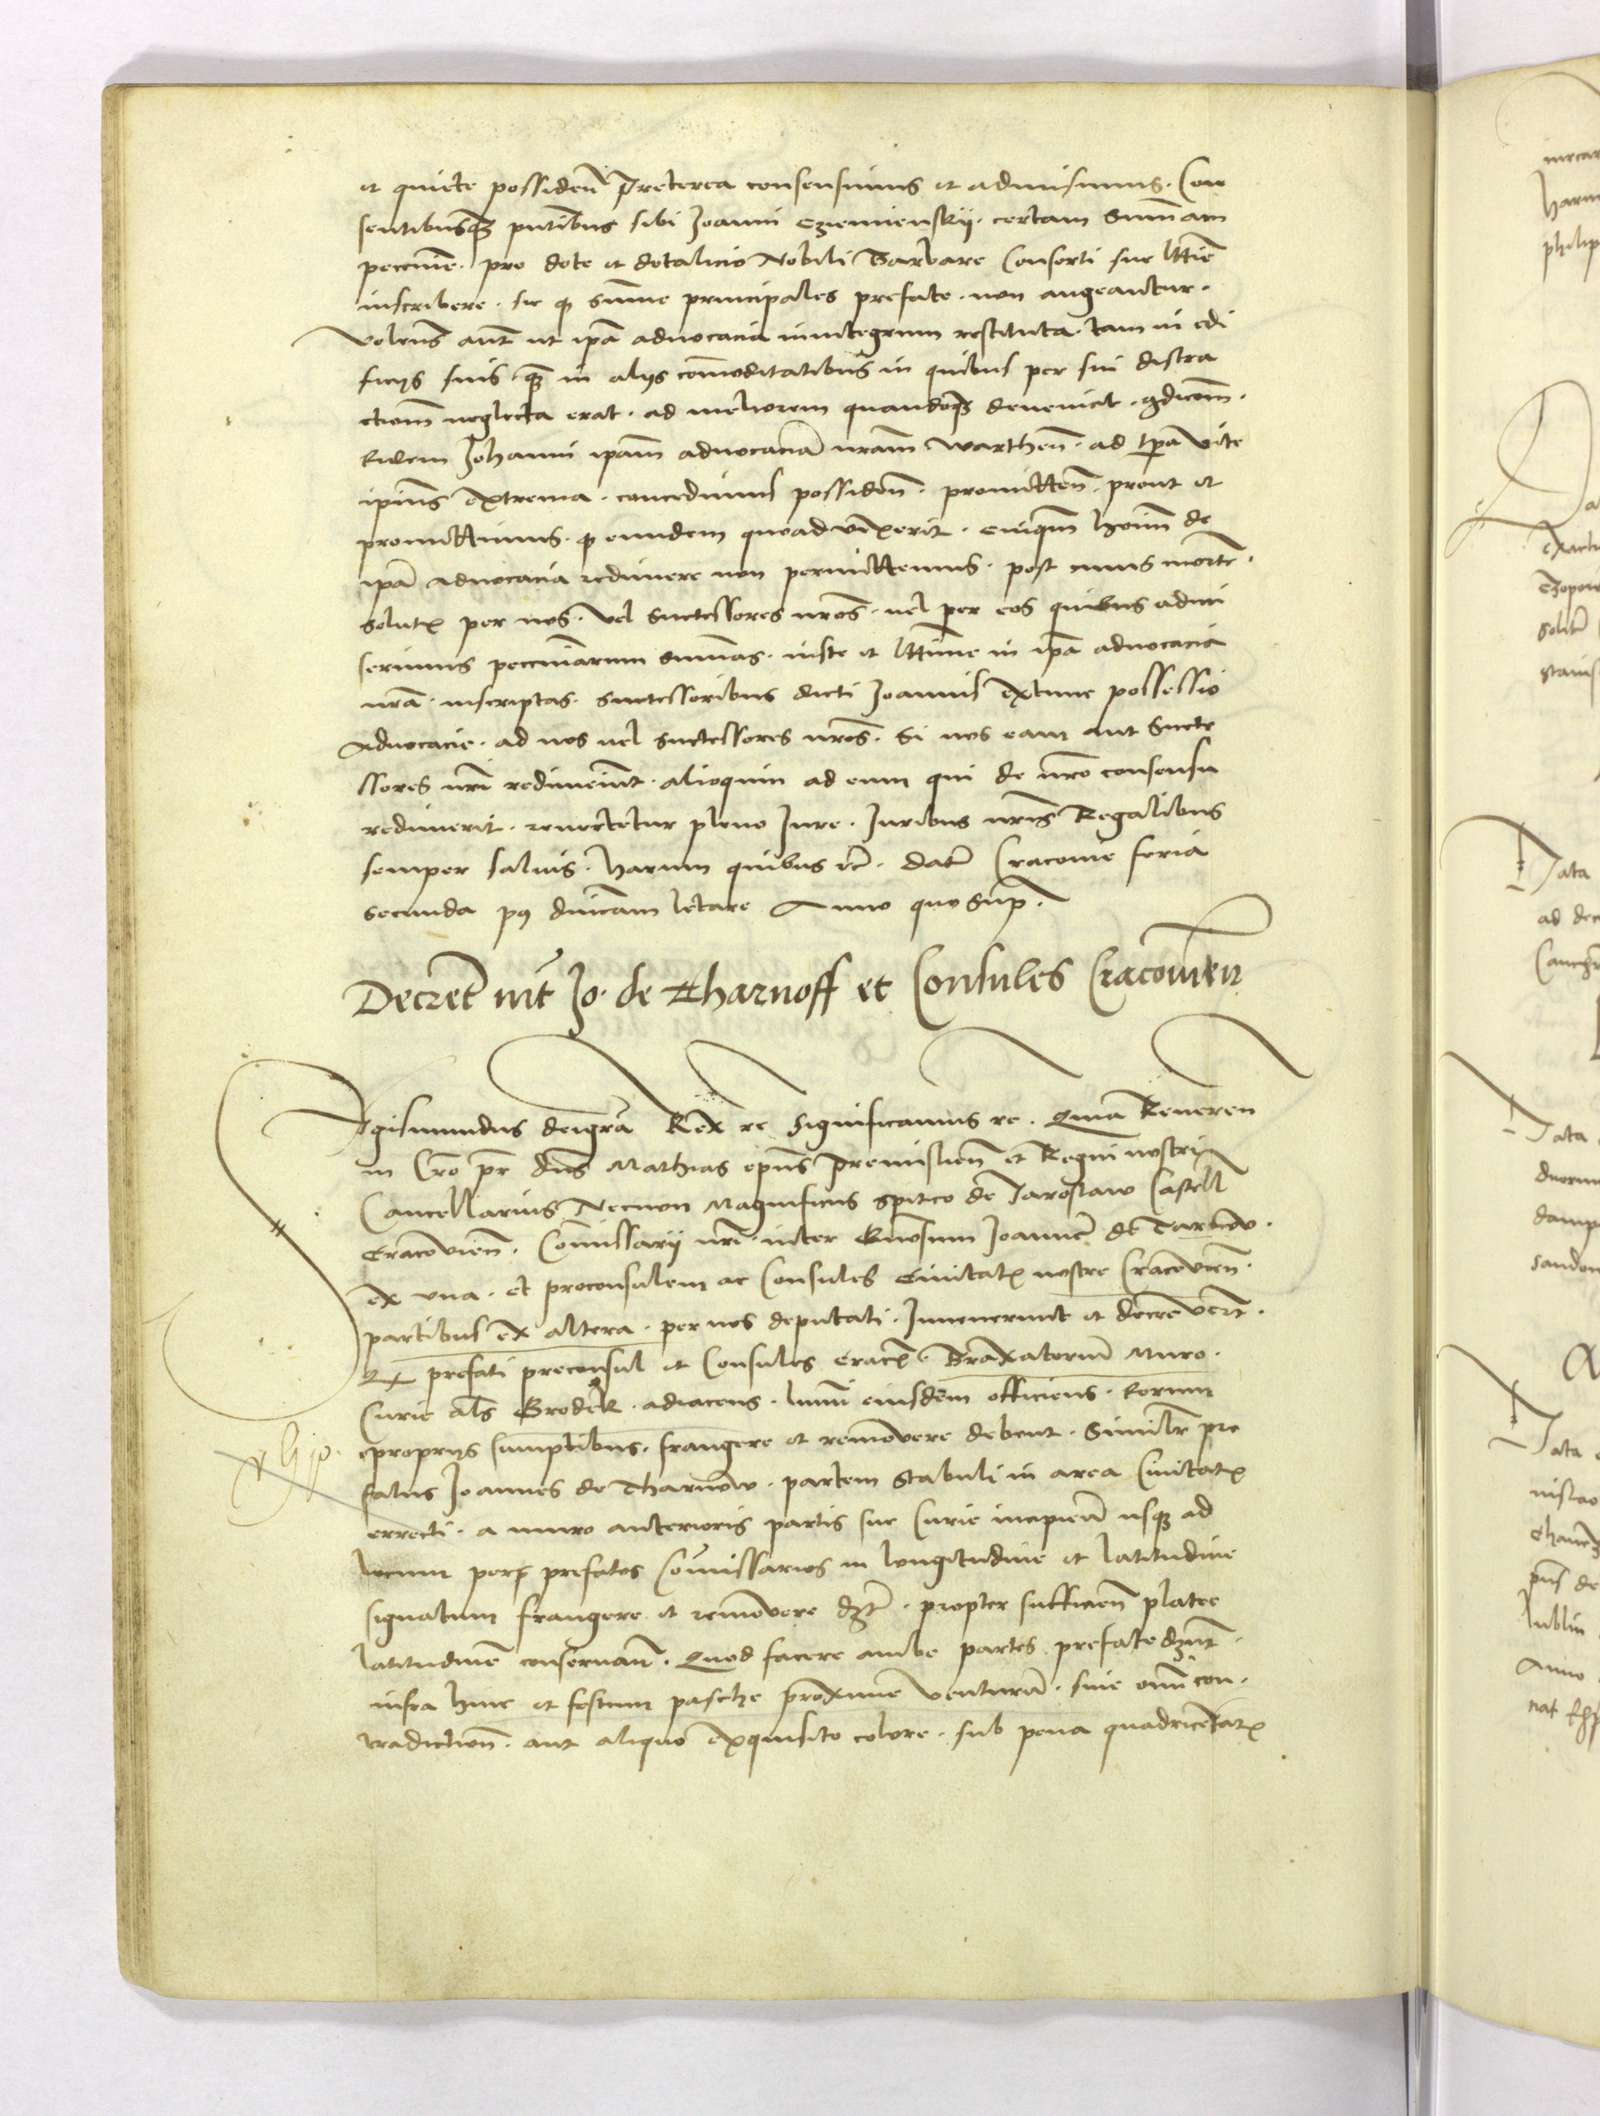 et quiete possiden̄ Preterea consensimus et admisimus. Con
sentibusq̄ȝ pn̄tibus sibi Joanni Cziemienskij. certam Sum̄am
peccunie. pro dote et dotalicio Nobili Barbare Consorti sue l̄ttīe
inscribere. sic q̄ sum̄e principales prefate. non augeantur.
Volens aūt ut ip̄a aduocacia inintegrum restituta. tam in edi
ficijs suis q̄ȝ in alijs com̄oditatibus in quibus per sui distra
ctiōm neglecta erat. ad meliorem quandoq̄ȝ deueniat
eidem Johanni ip̄am aduocaciā nr̄am Warthen̄. ad tp̄a vite
ip̄ius extrema. concedimus possiden̄. promitten̄. prout et
promittimus. q̄ eundem quoad vixerit. cuiq̄m hoīm de
ip̄a aduocacia redimere non permittemus. post cuius morte.
solutꝭ per nos. vel successores nr̄os. uel per eos quibus admi
serimus peccuniarum sum̄as. iuste et l̄ttīme in ip̄a aduocacia
nr̄a. inscriptas. successoribus dicti Joannis extunc possessio
Aduocacie. ad nos uel successores nr̄os. Si nos eam aut Succe
ssores nr̄i redimerīnt. alioquin ad eum qui de nr̄o consensu
redimerit. reuertetur pleno Jure. Juribus nr̄is Regalibus
semper saluis. harum quibus rc̄. Datū Cracouie feria
secunda pꝯ dn̄icam letare Anno quo sup̄.
Decretū int̄ Jo. de Tharnoff et Consules Cracouien̄
Sigismundus deigrā Rex rc Significamus rc. Quia Reueren
in Cr̄o pr̄ dn̄s Mathias ep̄us Premislien̄ et Regni nostri
Cancellarius Necnon Magnificus Spitco de Jaroslaw Castell̄
Cracouien̄. Com̄issarij nr̄i. inter Joannē de Tarnow.
ex vna. et proconsulem ac Consules Ciuitatꝭ nostre Cracouien̄.
partibus ex altera. per nos deputati. Inuenerunt et decreuer̄t.
prefati preconsul et Consules Cracꝭ. Braxatoriū Muro.
Curie al̄s Grodek. adiacens. lumī eiusdem officiens. eorum
proprijs sumptibus. frangere et remouere debent. Simil̄r pre
fatus Joannes de Tharnow. partem Stabuli in area Ciuitatꝭ
errecti. a muro anterioris partis sue Curie incipien̄ usq̄ȝ ad
locum per prefatos Com̄issarios in longitudine et latitudine
signatum frangere et remouere dȝt. propter sufficien̄ platee
latitudinē conseruan̄. Quod facere ambe partes prefate dn̄t.
infra hinc et festum pasche proxime venturū. sine om̄i con.
tradiction̄. aut aliquo exquisito colore. sub pena quadricentarꝭ